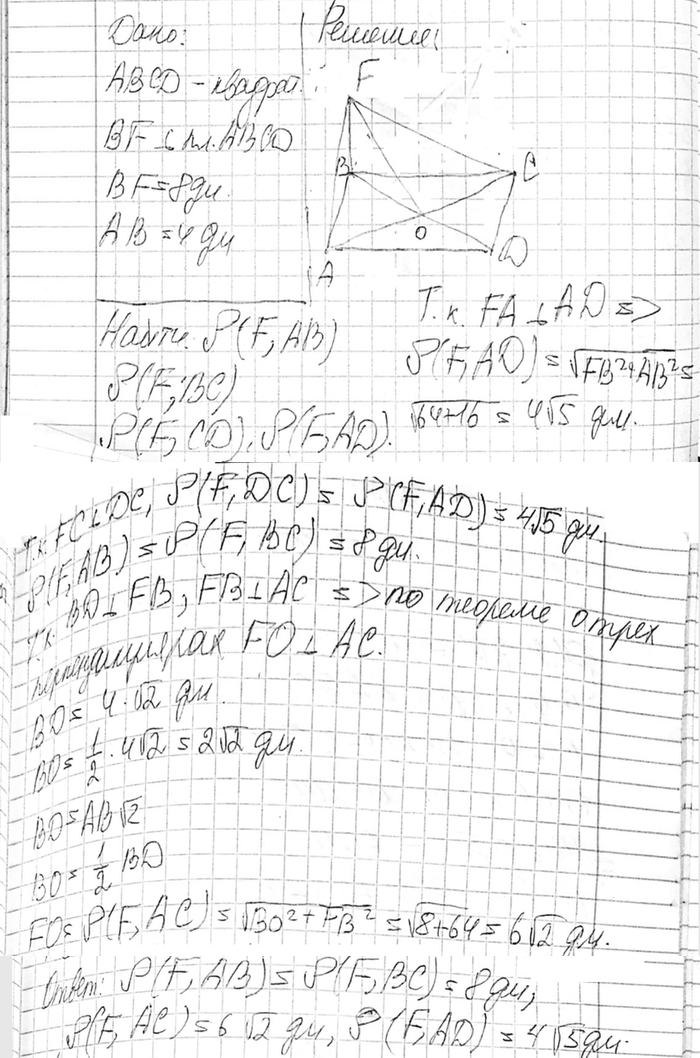 Дано:
ABCD – квадрат.
BF ⊥ пл. ABCD
BF = 8 дм.
AB = 4 дм
Найти: ρ(F, AB)
ρ(F, BC)
ρ(F, CD), ρ(F, AD).
Решение:
F
B
C
O
A
D
Т.к. FA ⊥ AD =>
ρ(F, AD) = √FB²+AB² =
√64+16 = 4√5 дм.
Т.к. FC ⊥ DC, ρ(F, DC) = ρ(F, AD) = 4√5 дм.
ρ(F, AB) = ρ(F, BC) = 8 дм.
Т.к. BD ⊥ FB, FB ⊥ AC => по теореме о трех
перпендикулярах FO ⊥ AC.
BD = 4·√2 дм.
BO = 1/2 · 4√2 = 2√2 дм.
BD = AB√2
BO = 1/2 BD
FO = ρ(F, AC) = √BO²+FB² = √8+64 = 6√2 дм.
Ответ: ρ(F, AB) = ρ(F, BC) = 8 дм,
ρ(F, AC) = 6√2 дм, ρ(F, AD) = 4√5 дм.